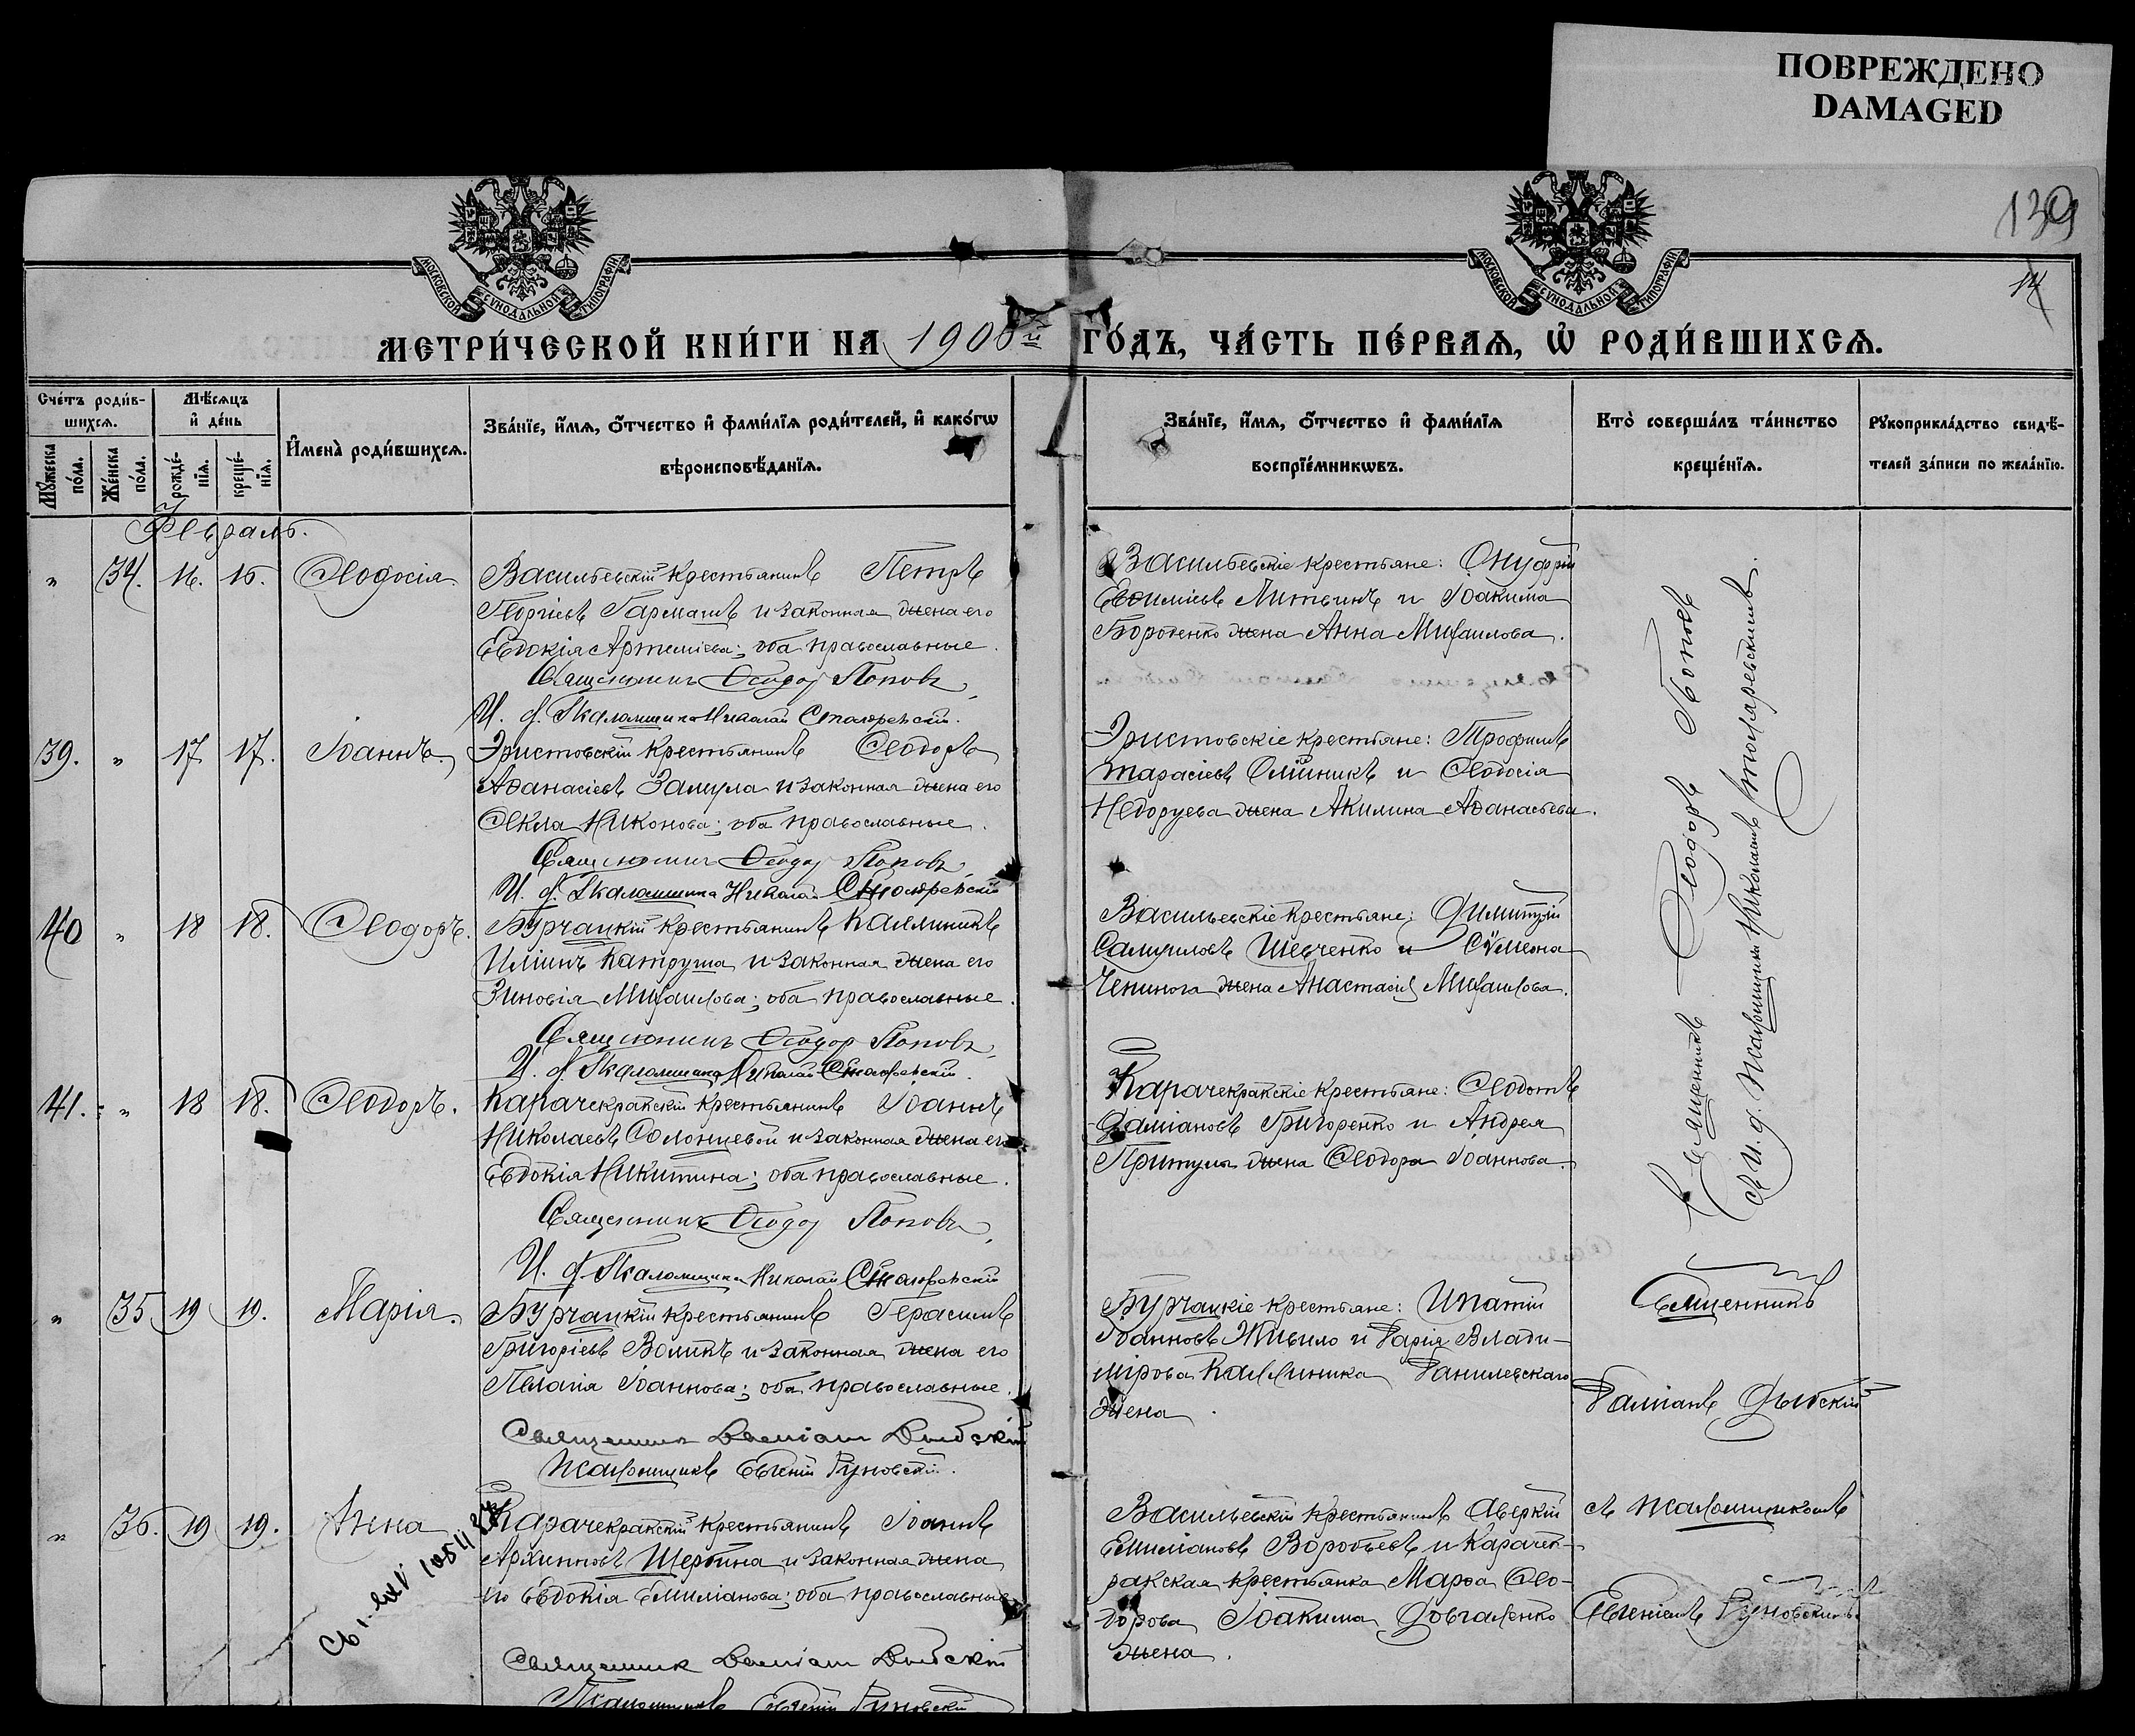 ПОВРЕЖДЕНО
DAMAGED
139
14
МОСКОВСКОЙ СѴНОДАЛЬНОЙ ТИПОГРАФІИ
МОСКОВСКОЙ СѴНОДАЛЬНОЙ ТИПОГРАФІИ
МЕТРИ́ЧЕСКОЙ КНИ́ГИ НА 1908й ГО́ДЪ, ЧА́СТЬ ПЕ́РВАѦ, Ѡ РОДИ́ВШИХСѦ.
Сче́тъ роди́в-
шихсѧ.
Мꙋ́жеска по́ла.
Же́нска по́ла.
Мѣ́сѧцъ
и҆ де́нь
рожде́-
нїѧ.
креще́-
нїѧ.
И҆мена̀ роди́вшихсѧ.
Зва́нїе, и҆́мѧ, ѻ҆́тчество и҆ фами́лїѧ роди́телей, и҆ како́гѡ
вѣроисповѣ́данїѧ.
Зва́нїе, и҆́мѧ, ѻ҆́тчество и҆ фами́лїѧ
воспрїе́мникѡвъ.
Кто̀ соверша́лъ та́инство
креще́нїѧ.
Рꙋкоприкла́дство свидѣ́-
телей за́писи по жела́нїю.
Февраль.
" 34. 16. 16. Ѳеодосія
Васильевскій крестьянинъ Петръ
Георгіевъ Гармашъ и законная жена его
Евдокія Артеміева; оба православные.
Священникъ Ѳеодоръ Поповъ
И. д. Псаломщика Николай
Васильевскіе крестьяне: Онуфрій
Евѳиміевъ Литвинъ и Іоакима
Бороденко жена Анна Михаилова.
39. " 17 17. Іоаннъ.
Эристовскій крестьянинъ Ѳеодоръ
Аѳанасіевъ Замула и законная жена его
Ѳекла Никонова; оба православные.
Священникъ Ѳеодоръ Поповъ
И. д. Псаломщика Николай
Эристовскіе крестьяне: Трофимъ
Тарасіевъ Олійникъ и Ѳеодосія
жена Акилина Аѳанасьева.
40 " 18 18. Ѳеодоръ.
Бурчацкій крестьянинъ Каллиникъ
Иліинъ Катруша и законная жена его
Зиновія Михаилова; оба православные.
Священникъ Ѳеодоръ Поповъ
И. д. Псаломщика Николай
Васильевскіе крестьяне: Димитрій
Самуиловъ Шевченко и Сѵмеона
жена Анастасія Михаилова.
41. " 18 18. Ѳеодоръ.
Карачекракскій крестьянинъ Іоаннъ
Николаевъ Солонцевой и законная жена его
Евдокія Никитина; оба православные.
Священникъ Ѳеодоръ Поповъ
И. д. Псаломщика Николай
Карачекракскіе крестьяне: Ѳеодотъ
Даміановъ Григоренко и Андрея
Притулы жена Ѳеодора Іоаннова.
Священникъ Ѳеодоръ Поповъ
съ И. д. Псаломщика Николаемъ
" 35 19 19. Марія.
Бурчацкій крестьянинъ Герасимъ
Григоріевъ Воликъ и законная жена его
Пелагія Іоаннова; оба православные.
Священникъ Даміанъ Дыбскій
Псаломщикъ Евгеній Руновскій.
Бурчацкіе крестьяне: Ипатій
Іоанновъ Живило и Дарія Влади-
мірова Каллиника Данилевскаго
жена.
Священникъ
Даміанъ Дыбскій
" 36. 19 19. Анна
Карачекракскій крестьянинъ Іоаннъ
Архиповъ Щербина и законная жена
его Евдокія Емиліанова; оба православные
Священникъ Даміанъ Дыбскій
Псаломщикъ Евгеній Руновскій
Васильевскій крестьянинъ Аверкій
Емиліановъ Воробьевъ и Карачек-
ракская крестьянка Марѳа Ѳео-
дорова Іоакима Довгаленко
жена.
съ псаломщикомъ
Евгеніемъ Руновскимъ